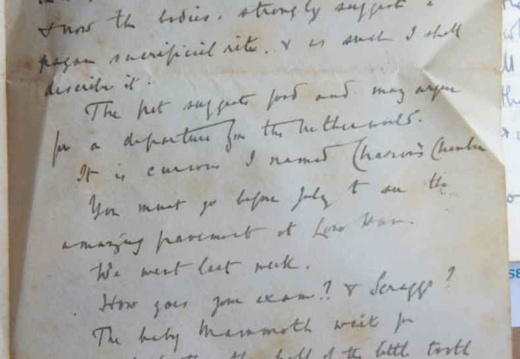 & now the bodies. strongly suggest a
pagan sacrificial rite. & as such I shall
describe it.
The pot suggests food and may argue
for a departure for the Netherworld.
It is curious I named Charon's Chamber
You must go before July to see the
amazing pavement at Low Ham.
We went last week.
How goes your exam? & Scraggs?
The baby Mammoth wait for
the half of the little tooth